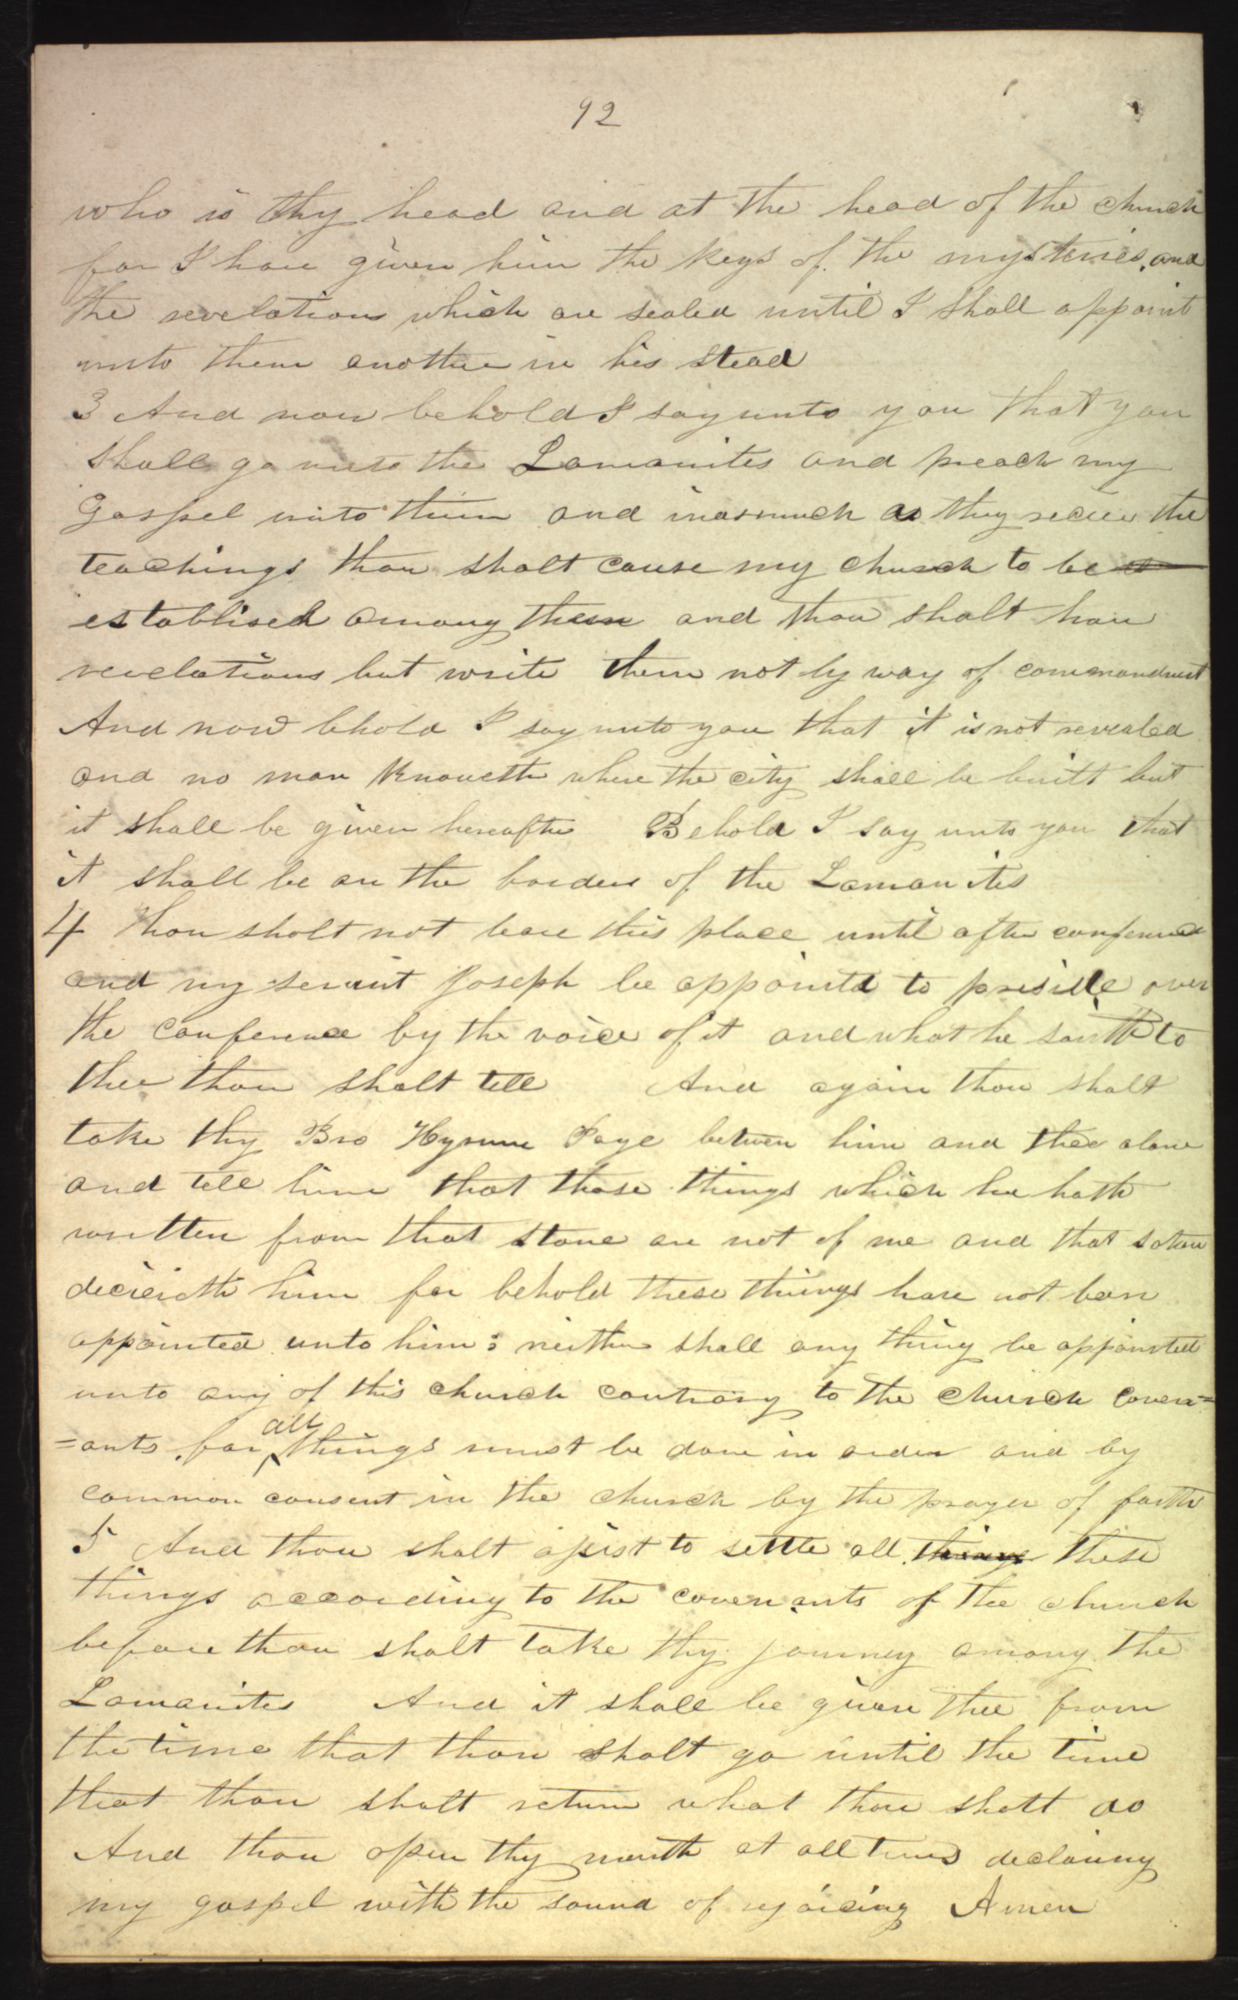 92
who is thy head and at the head of the church
for I have given him the keys of the mysteries, and
the revelations which are sealed until I shall appoint
unto them another in his stead
3 And now behold I say unto you that you
shall go unto the Lamanites and preach my
Gospel unto them and inasmuch as they recieve the
teachings thou shalt cause my church to be
establised among them and thou shalt have
revelations but write them not by way of commandment
And now behold I say unto you that it is not revealed
and no man knoweth where the city shall be built but
it shall be given hereafter Behold I say unto you that
it shall be on the borders of the Lamanites
4 Thou shalt not leave this place until after conference
and my servant Joseph be appointd to preside over
the conference by the voice of it and what he saith to
thee thou shalt tell And again thou shalt
take thy Bro Hyrum Page between him and thee alone
and tell him that those things which he hath
written from that stone are not of me and that satan
decieveth him for behold these things have not been
appointed unto him: neither shall any thing be appointed
unto any of this church contrary to the church coven=
=ants for all things must be done in order and by
common consent in the church by the prayer of faith
5 And thou shalt assist to settle all things these
things according to the covenants of the church
before thou shalt take thy journey among the
Lamanites And it shall be given thee from
the time that thou shalt go until the time
that thou shalt return what thou shalt do
And thou open thy mouth at all times declaring
my gospel with the sound of rejoicing Amen